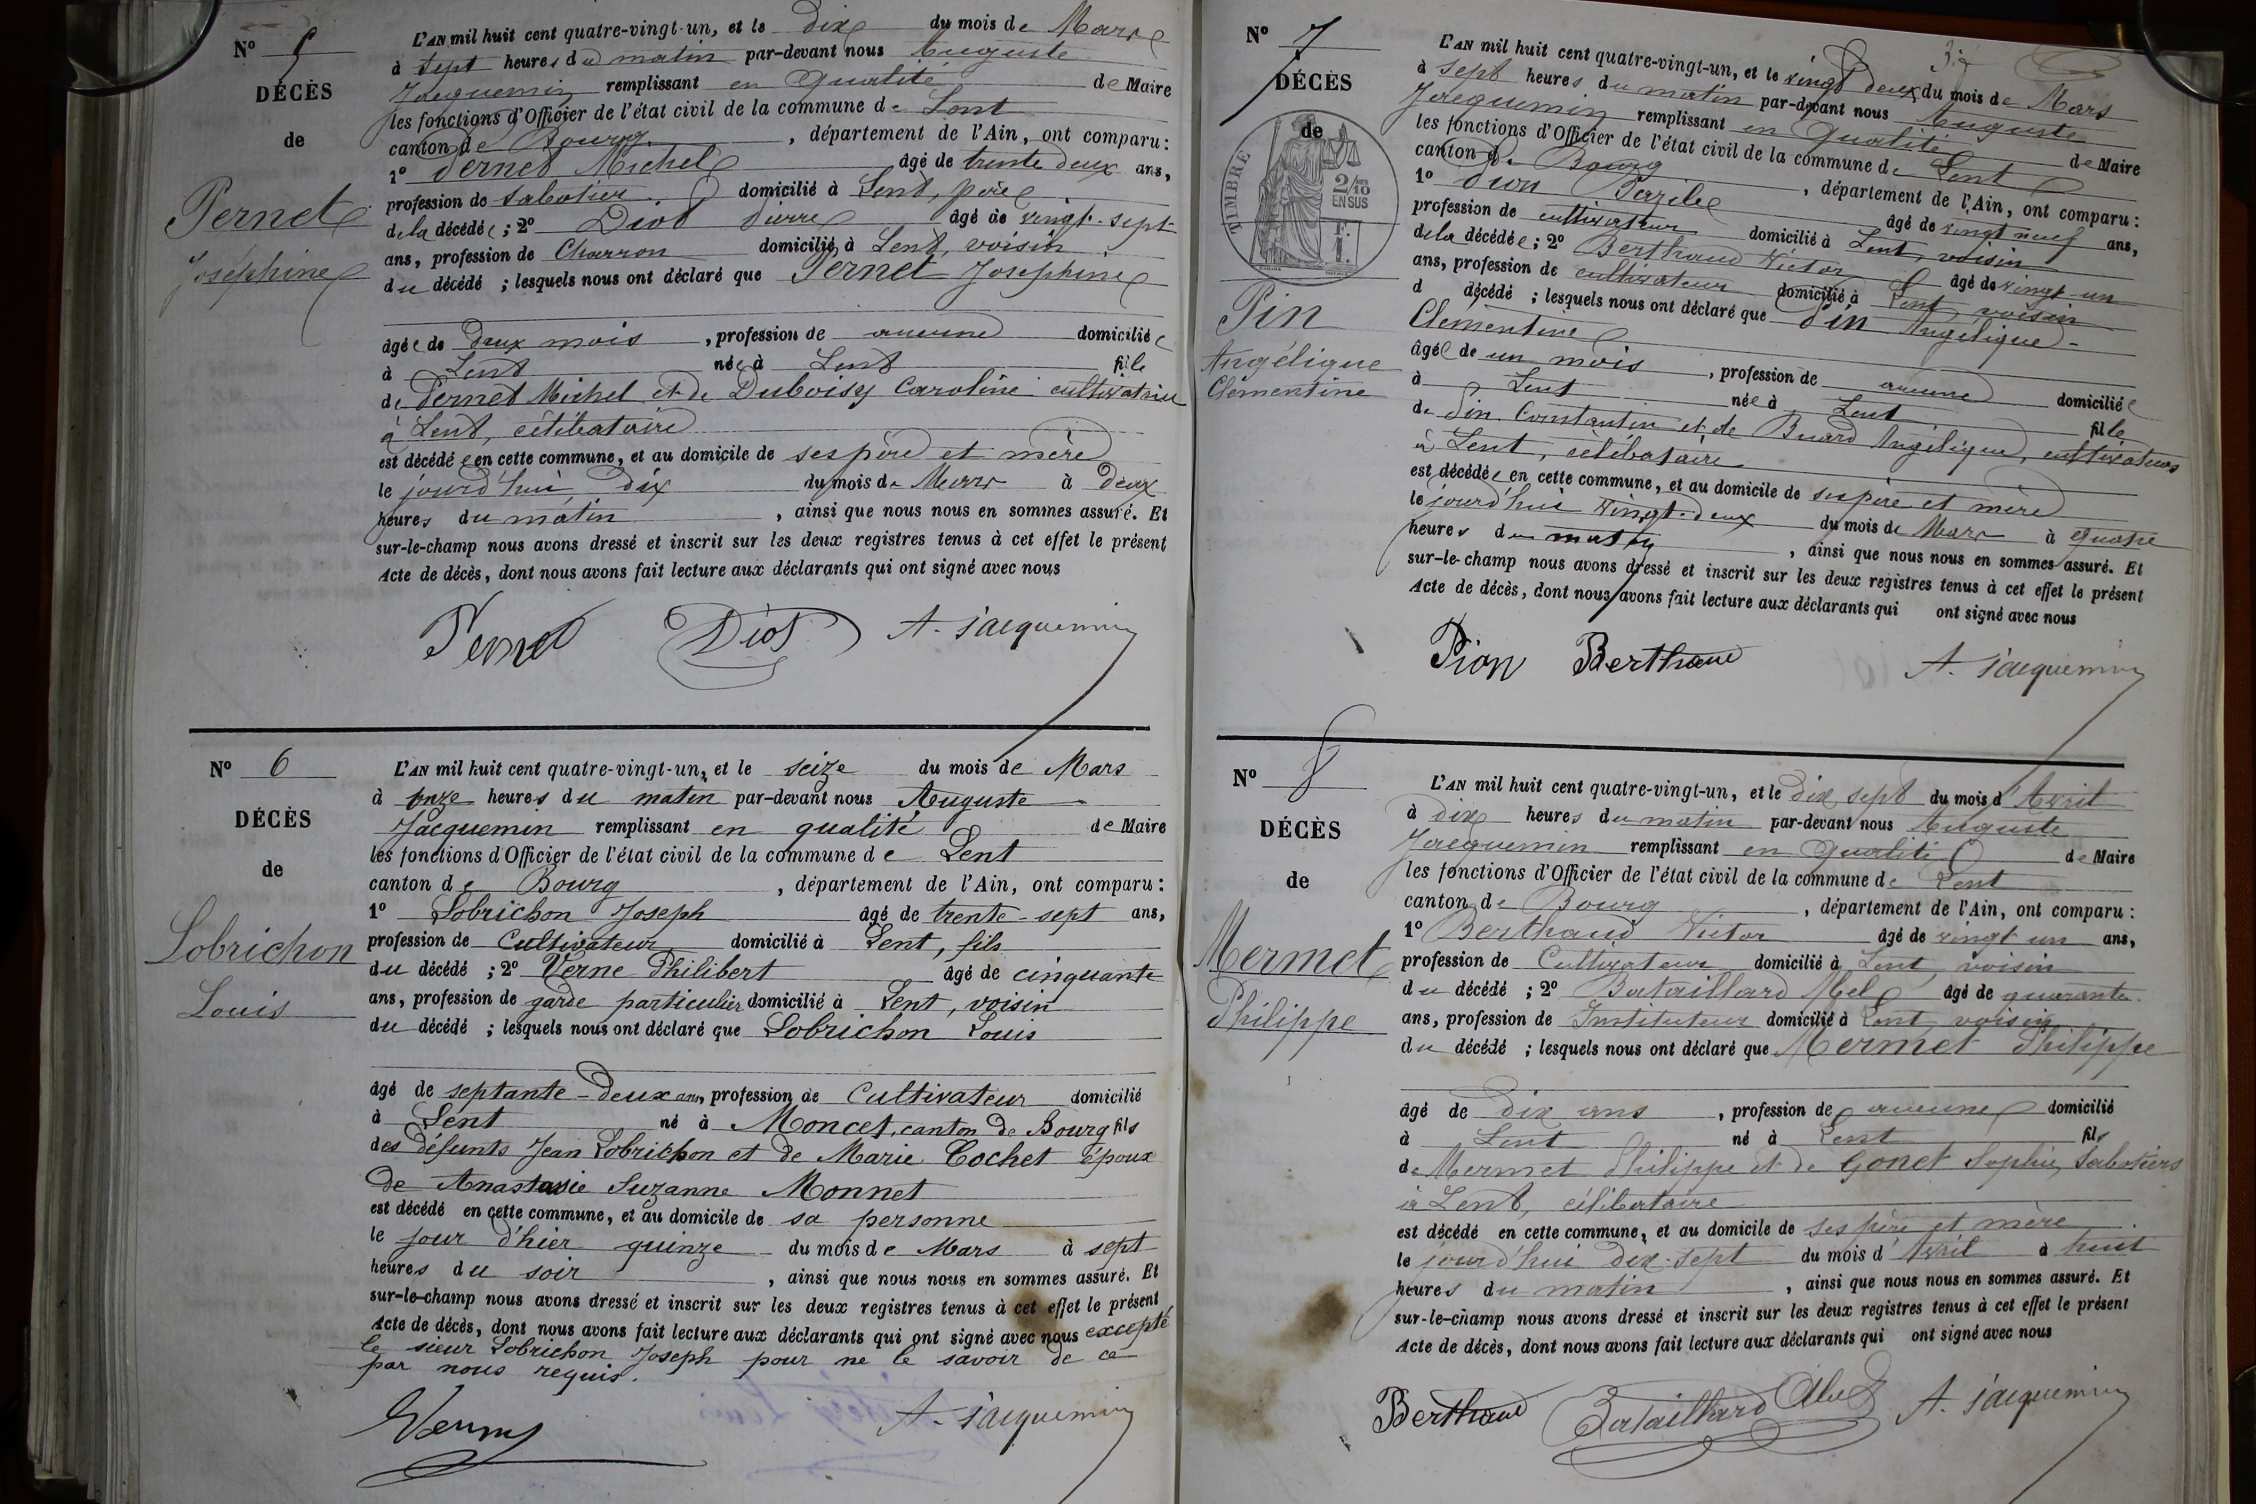 N° 5
DÉCÈS
de
Pernet
Joséphine
L'AN mil huit cent quatre-vingt-un, et le dix du mois de Mars
à sept heures du matin par-devant nous Auguste
Jacquemin remplissant en qualité de Maire
les fonctions d'Officier de l'état civil de la commune de Lent
canton de Bourg, département de l'Ain, ont comparu:
1° Pernet Michel âgé de trente deux ans,
profession de sabotier domicilié à Lent, père
de la décédée; 2° Diot Pierre âgé de vingt-sept
ans, profession de Charron domicilié à Lent, voisin
du décédé; lesquels nous ont déclaré que Pernet Joséphine
âgée de deux mois, profession de aucune domiciliée
à Lent née à Lent fille
de Pernet Michel et de Duboisy Caroline cultivatrice
à Lent, célibataire
est décédée en cette commune, et au domicile de ses père et mère
le jourd'hui dix du mois de Mars à deux
heures du matin, ainsi que nous nous en sommes assuré. Et
sur-le-champ nous avons dressé et inscrit sur les deux registres tenus à cet effet le présent
Acte de décès, dont nous avons fait lecture aux déclarants qui ont signé avec nous
Pernet Diot A. Jacquemin
N° 6
DÉCÈS
de
Lobrichon
Louis
L'AN mil huit cent quatre-vingt-un, et le seize du mois de Mars
à onze heures du matin par-devant nous Auguste
Jacquemin remplissant en qualité de Maire
les fonctions d'Officier de l'état civil de la commune de Lent
canton de Bourg, département de l'Ain, ont comparu:
1° Lobrichon Joseph âgé de trente-sept ans,
profession de Cultivateur domicilié à Lent, fils
du décédé; 2° Verne Philibert âgé de cinquante
ans, profession de garde particulier domicilié à Lent, voisin
du décédé; lesquels nous ont déclaré que Lobrichon Louis
âgé de septante-deux ans, profession de Cultivateur domicilié
à Lent né à Moncet, canton de Bourg fils
des défunts Jean Lobrichon et de Marie Cochet époux
de Anastasie Suzanne Monnet
est décédé en cette commune, et au domicile de sa personne
le jour d'hier quinze du mois de Mars à sept
heures du soir, ainsi que nous nous en sommes assuré. Et
sur-le-champ nous avons dressé et inscrit sur les deux registres tenus à cet effet le présent
Acte de décès, dont nous avons fait lecture aux déclarants qui ont signé avec nous excepté
le sieur Lobrichon Joseph pour ne le savoir de ce
par nous requis.
A. Jacquemin
N° 7
DÉCÈS
de
TIMBRE
2/10
EN SUS
Pin
Angélique
Clémentine
L'AN mil huit cent quatre-vingt-un, et le vingt deux du mois de Mars
à sept heures du matin par-devant nous Auguste
Jacquemin remplissant en qualité de Maire
les fonctions d'Officier de l'état civil de la commune de Lent
canton de Bourg, département de l'Ain, ont comparu:
1° Pion Bazile âgé de vingt neuf ans,
profession de cultivateur domicilié à Lent, voisin
de la décédée; 2° Berthaud Victor âgé de vingt un
ans, profession de cultivateur domicilié à Lent voisin
d décédé; lesquels nous ont déclaré que Pin Angélique-
Clémentine
âgée de un mois, profession de aucune domiciliée
à Lent née à Lent fille
de Pin Constantin et de Buard Angélique, cultivateurs
à Lent, célibataire
est décédée en cette commune, et au domicile de ses père et mère
le jourd'hui vingt-deux du mois de Mars à quatre
heures du matin, ainsi que nous nous en sommes assuré. Et
sur-le-champ nous avons dressé et inscrit sur les deux registres tenus à cet effet le présent
Acte de décès, dont nous avons fait lecture aux déclarants qui ont signé avec nous
Pion Berthaud A. Jacquemin
N° 8
DÉCÈS
de
Mermet
Philippe
L'AN mil huit cent quatre-vingt-un, et le dix sept du mois d'Avril
à dix heures du matin par-devant nous Auguste
Jacquemin remplissant en qualité de Maire
les fonctions d'Officier de l'état civil de la commune de Lent
canton de Bourg, département de l'Ain, ont comparu:
1° Berthaud Victor âgé de vingt un ans,
profession de Cultivateur domicilié à Lent, voisin
du décédé; 2° Bataillard Abel âgé de quarante
ans, profession de Instituteur domicilié à Lent, voisin
du décédé; lesquels nous ont déclaré que Mermet Philippe
âgé de dix ans, profession de aucune domicilié
à Lent né à Lent fils
de Mermet Philippe et de Gonet Sophie, Sabotiers
à Lent, célibataire
est décédé en cette commune, et au domicile de ses père et mère
le jourd'hui dix-sept du mois d'Avril à huit
heures du matin, ainsi que nous nous en sommes assuré. Et
sur-le-champ nous avons dressé et inscrit sur les deux registres tenus à cet effet le présent
Acte de décès, dont nous avons fait lecture aux déclarants qui ont signé avec nous
Berthaud Bataillard Abel A. Jacquemin